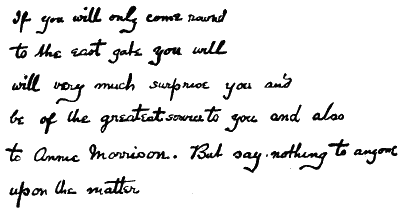 If you will only come round
to the east gate you will
will very much surprise you and
be of the greatest source to you and also
to Annie Morrison. But say nothing to anyone
upon the matter